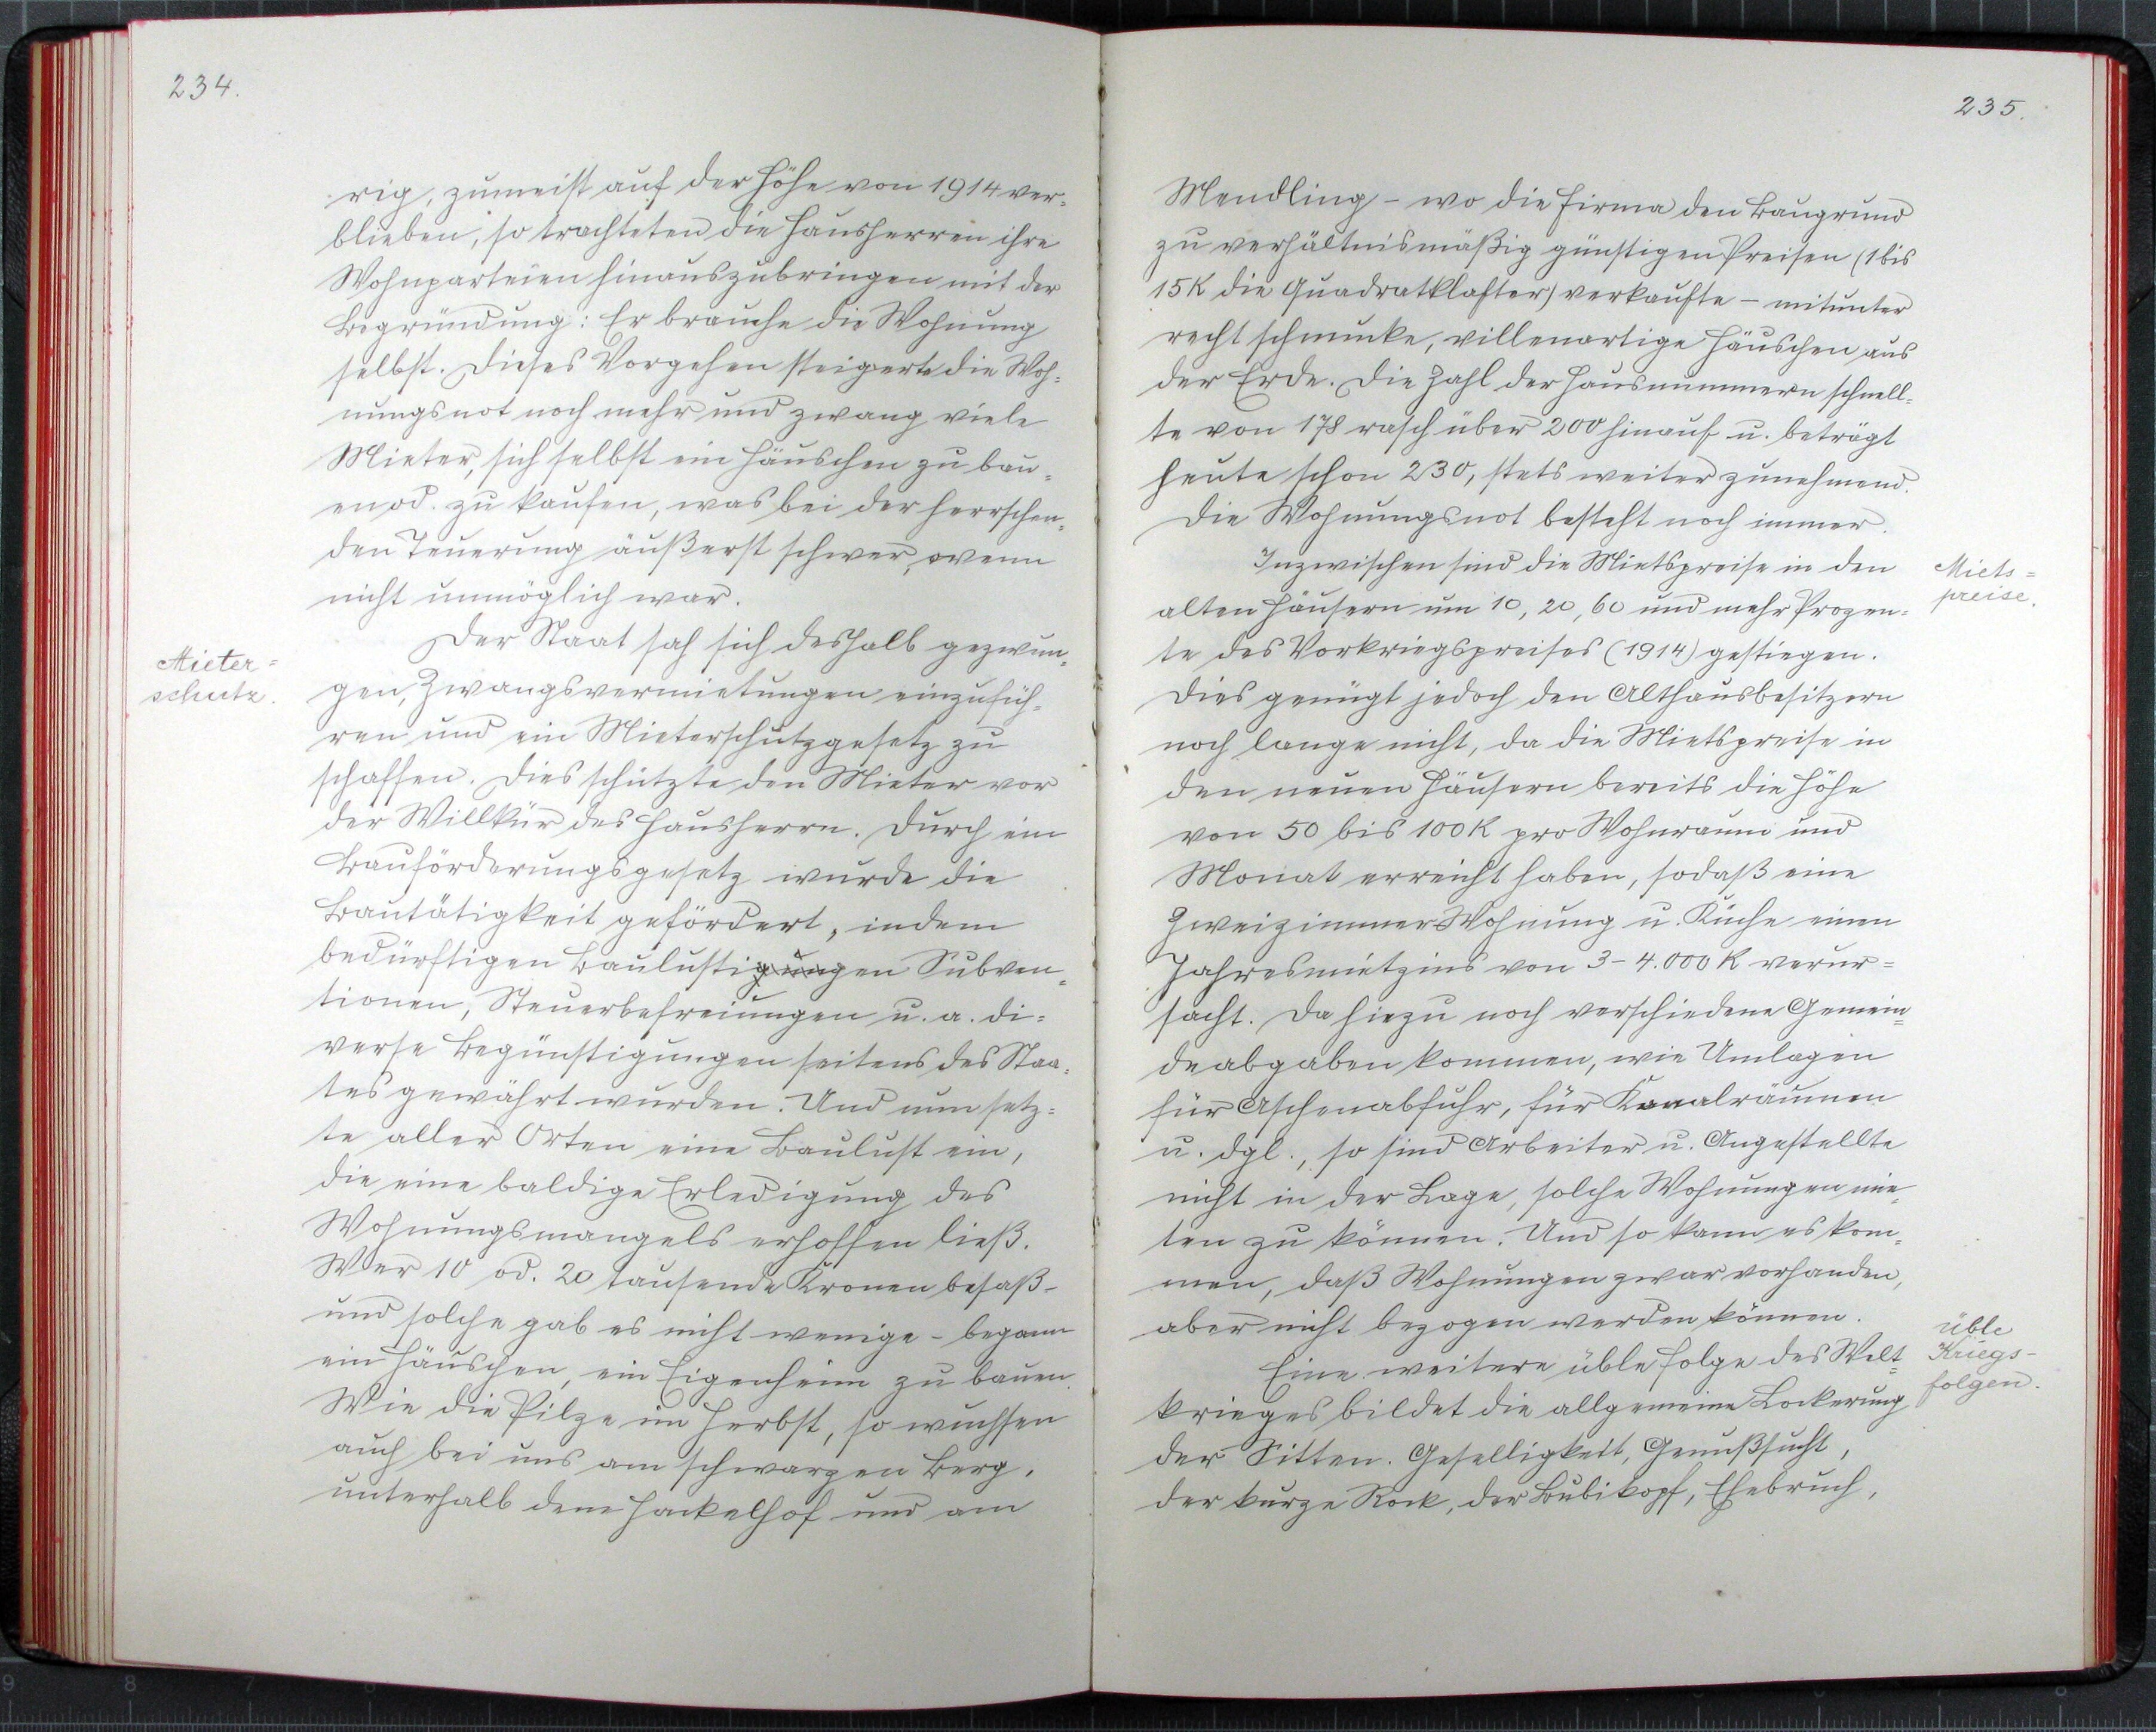 234.
rig, zumeist auf der Höhe von 1914 ver=
blieben, so trachteten die Hausherren ihre
Wohnparteien hinauszubringen mit der
Begründung: Er brauche die Wohnung
selbst. Dieses Vorgehen steigerte die Woh=
nungsnot noch mehr und zwang viele
Mieter, sich selbst ein Häuschen zu bau=
en od. zu kaufen, was bei der herrschen=
den Teuerung äußerst schwer, wenn
nicht unmöglich war.
Der Staat sah sich deshalb gezwun=
Mieter=
schutz.
gen, Zwangsvermietungen einzufüh=
ren und ein Mieterschutzgesetz zu
schaffen. Dies schützte den Mieter vor
der Willkür des Hausherrn. Durch ein
Bauförderungsgesetz wurde die
Bautätigkeit gefördert, indem
bedürftigen Baulustigen Subven=
tionen, Steuerbefreiungen u. a. di=
verse Begünstigungen seitens des Staa=
tes gewährt wurden. Und nun setz=
te aller Orten eine Baulust ein,
die eine baldige Erledigung des
Wohnungsmangels erhoffen ließ.
Wer 10 od. 20 tausende Kronen besaß -
und solche gab es nicht wenige - begann
ein Häuschen, ein Eigenheim zu bauen.
Wie die Pilze im Herbst, so wuchsen
auch bei uns am schwarzen Berg,
unterhalb dem Hackelhof und am
235.
Mendling - wo die Firma den Baugrund
zu verhältnismäßig günstigen Preisen (1 bis
15K die Quadratklafter) verkaufte - mitunter
recht schmucke, villenartige Häuschen aus
der Erde. Die Zahl der Hausnummern schnell=
te von 178 rasch über 200 hinauf u. beträgt
heute schon 230, stets weiter zunehmend.
Die Wohnungsnot besteht noch immer.
Inzwischen sind die Mietspreise in den
Miets=
preise.
alten Häusern um 10, 20, 60 und mehr Prozen=
te des Vorkriegspreises (1914) gestiegen.
Dies genügt jedoch den Althausbesitzern
noch lange nicht, da die Mietspreise in
den neuen Häusern bereits die Höhe
von 50 bis 100K pro Wohnraum und
Monat erreicht haben, sodaß eine
Zweizimmer Wohnung u. Küche einen
Jahresmietzins von 3-4.000 K verur=
sacht. Da hiezu noch verschiedene Gemein=
deabgaben kommen, wie Umlagen
für Aschenabfuhr, für Kanalräumen
u. dgl., so sind Arbeiter u. Angestellte
nicht in der Lage, solche Wohnungen mie=
ten zu können. Und so kann es kom=
men, daß Wohnungen zwar vorhanden,
aber nicht bezogen werden können.
Eine weitere üble Folge des Welt=
üble
Kriegs-
folgen.
krieges bildet die allgemeine Lockerung
der Sitten. Geselligkeit, Genußsucht,
der kurze Rock, der Bubikopf, Ehebruch,